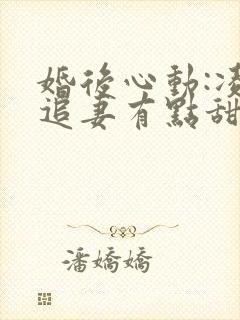 婚後心動:凌
追妻有點甜
潘嬌嬌